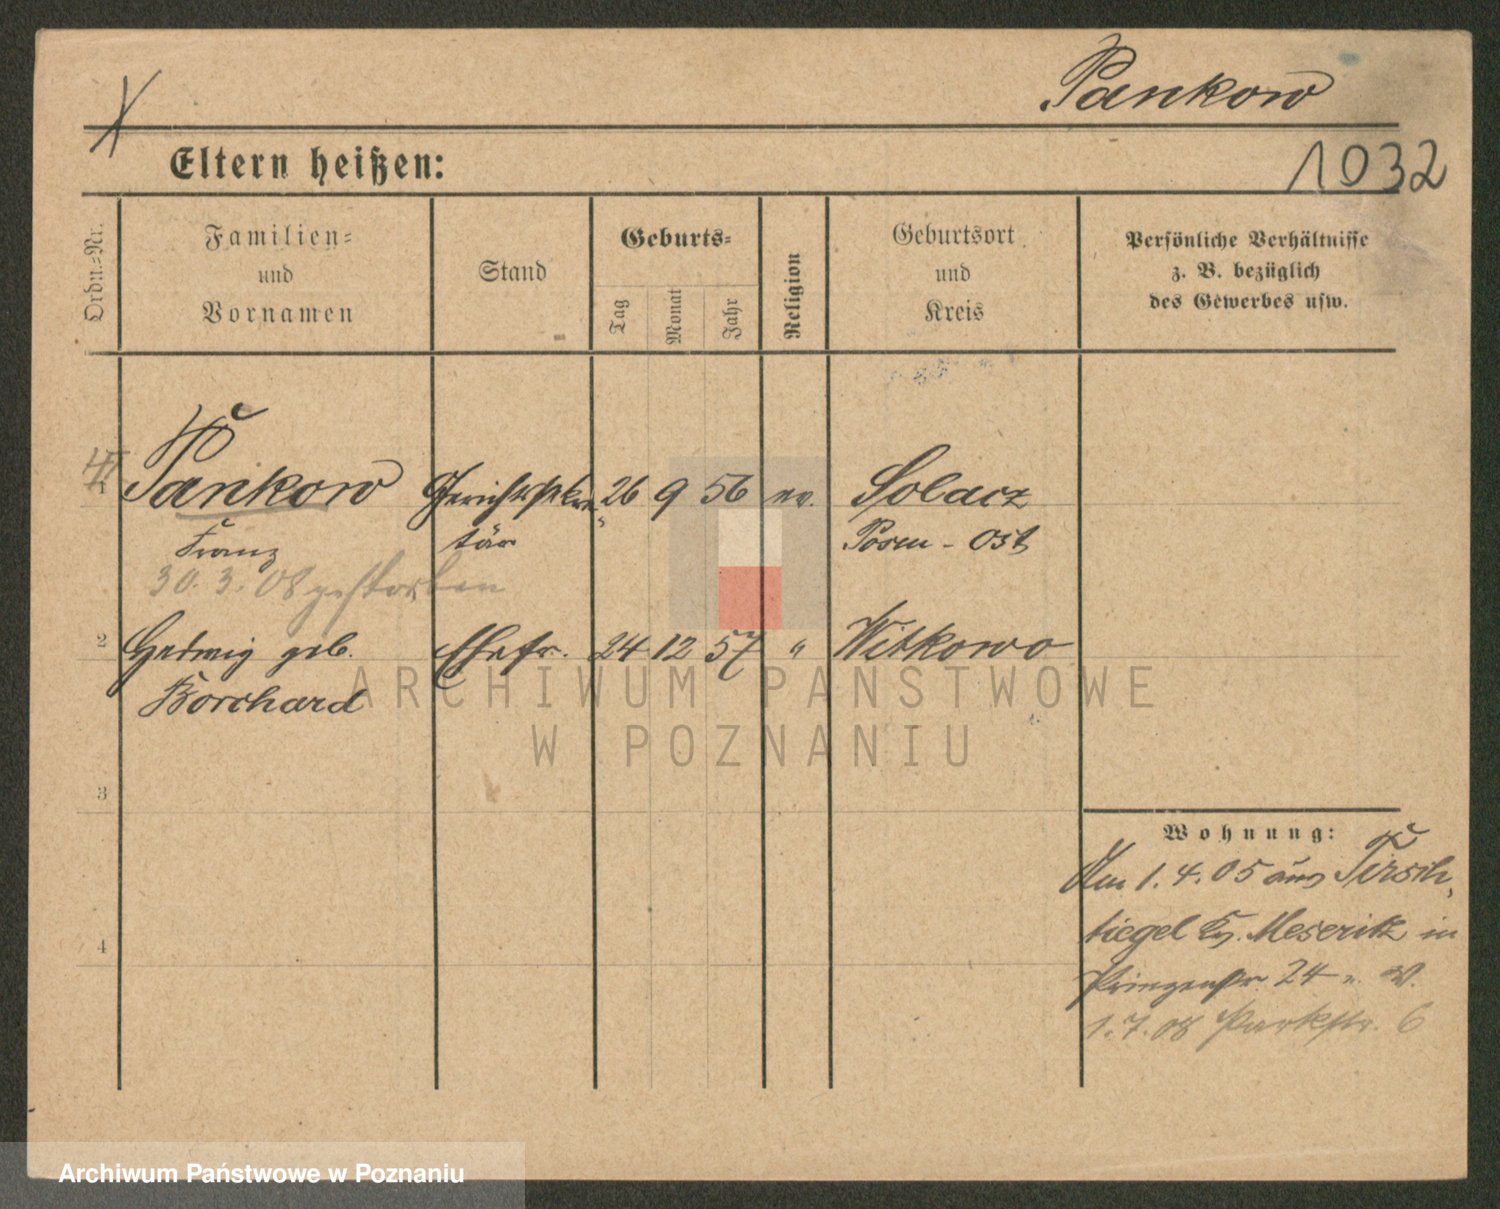 Pankow
1032
Eltern heißen:
Ordn.-Nr.
Familien-
und
Vornamen
Stand
Geburts-
Tag
Monat
Jahr
Religion
Geburtsort
und
Kreis
Persönliche Verhältnisse
z. B. bezüglich
des Gewerbes usw.
1 Pankow Gerichtssekre- 26 9 56 ev. Solacz
Franz tär Posen-Ost
30. 3. 08 gestorben
2 Hedwig geb. Ehefr. 24 12 57 " Witkowo
Borchard
3
4
Wohnung:
Am 1. 4. 05 aus Tirsch-
tiegel Kr. Meseritz in
Prinzenstr. 24
1. 7. 08 Parkstr. 6
ARCHIWUM PAŃSTWOWE
W POZNANIU
Archiwum Państwowe w Poznaniu